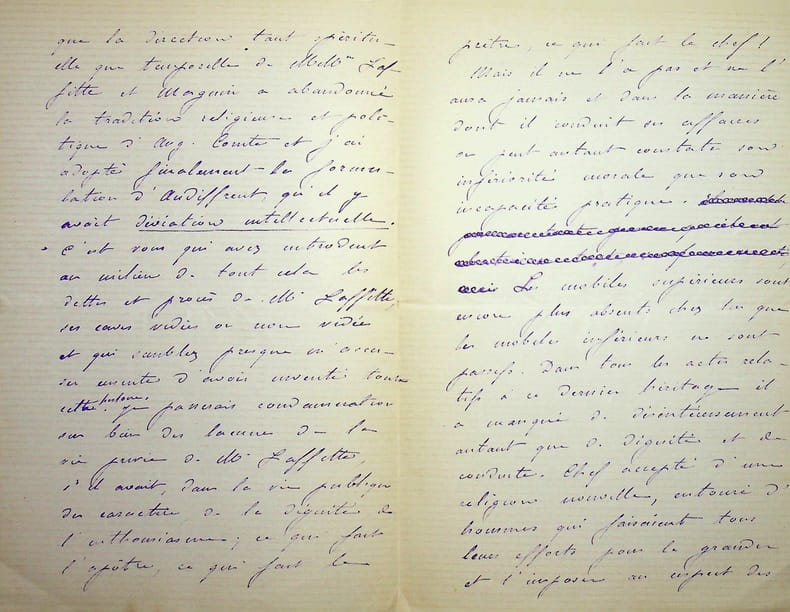 que la direction tant spiritu-
elle que temporelle de MMrs Laf-
fitte et Magnin a abandonné
la tradition religieuse et poli-
tique d'Aug. Comte et j'ai
adopté finalement la formu-
lation d'Audiffrent, qu'il y
avait déviation intellectuelle.
C'est vous qui avez introduit
au milieu de tout cela les
dettes et procès de Mr Laffitte,
ses caves vidées ou non vidées
et qui semblez presque m'accu-
ser ensuite d'avoir inventé toute
cette histoire. Je passerais condamnation
sur bien des lacunes de la
vie privée de Mr Laffitte,
s'il avait, dans la vie publique
du caractère, de la dignité de
l'enthousiasme; ce qui fait
l'apôtre, ce qui fait le
prêtre, ce que fait le chef!
Mais il ne l'a pas et ne l'
aura jamais et dans la manière
dont il conduit ses affaires
on peut autant constater son
infériorité morale que son
incapacité pratique.
Les mobiles supérieurs sont
encore plus absents chez lui que
les mobiles inférieurs ne sont
passifs. Dans tous les actes rela-
tifs à ce dernier héritage il
a manqué de désintéressement
autant que de dignité et de
conduite. Chef accepté d'une
religion nouvelle, entouré d'
hommes qui faisaient tous
leurs efforts pour le grandir
et l'imposer au respect des